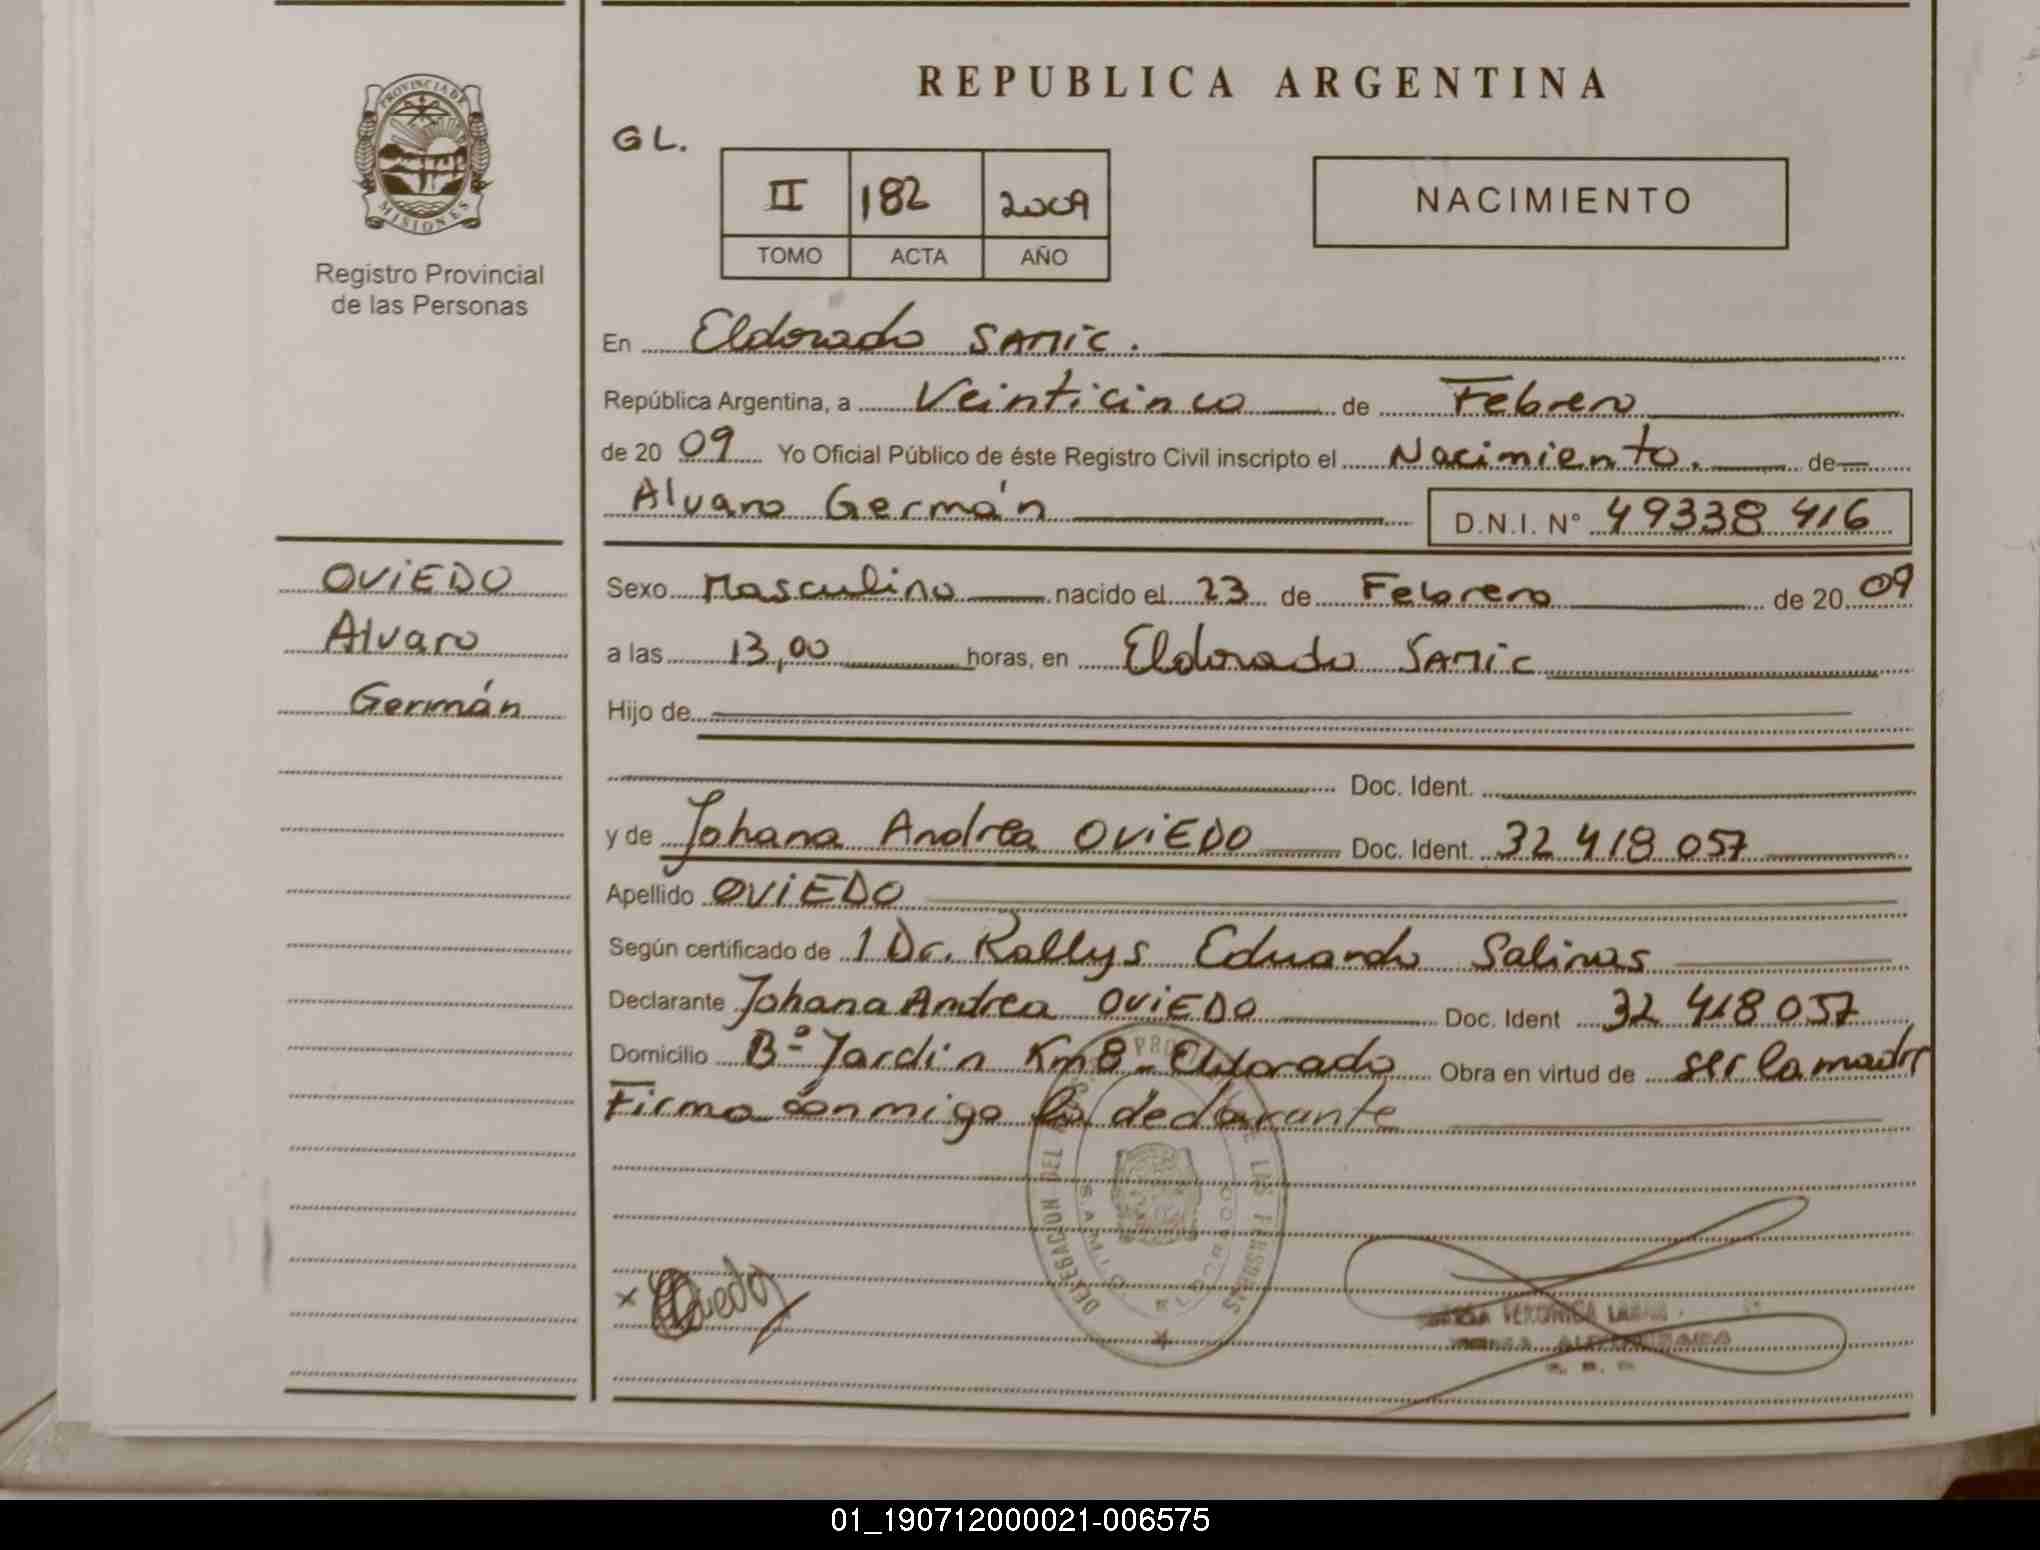 REPUBLICA ARGENTINA
PROVINCIA DE
MISIONES
Registro Provincial
de las Personas
GL.
II 182 2009
TOMO ACTA AÑO
NACIMIENTO
En Eldorado SAMIC.
República Argentina, a Veinticinco de Febrero
de 2009 Yo Oficial Público de éste Registro Civil inscripto el Nacimiento. de
Alvaro Germán D.N.I. N° 49338416
OVIEDO
Alvaro
Germán
Sexo Masculino nacido el 23 de Febrero de 2009
a las 13,00 horas, en Eldorado SAMIC
Hijo de
Doc. Ident.
y de Johana Andrea OVIEDO Doc. Ident. 32 418 057
Apellido OVIEDO
Según certificado de 1 Dr. Rallys Eduardo Salinas
Declarante Johana Andrea OVIEDO Doc. Ident 32 418 057
Domicilio Bº Jardín Km8 - Eldorado Obra en virtud de ser la madre
Firma conmigo la declarante
DELEGACION DEL LAS PERSONAS
S.A.M.I.C. ELDORADO
x Oviedo
VERONICA
01_190712000021-006575